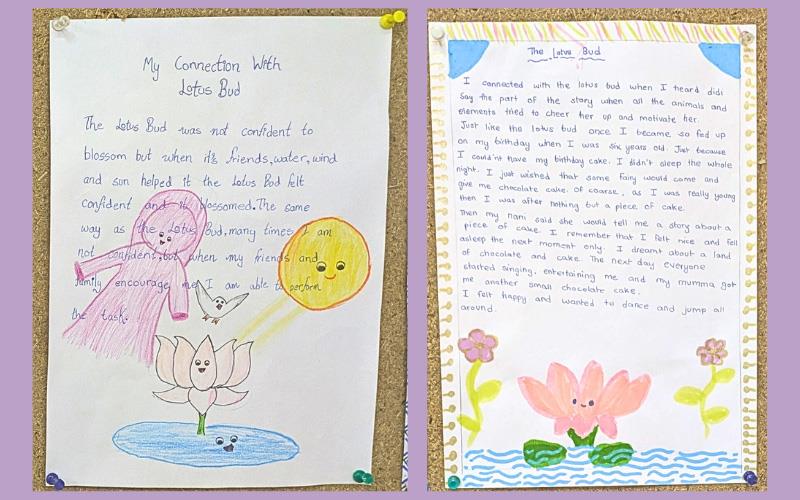 My Connection With
Lotus Bud
The Lotus Bud was not confident to
blossom but when it's friends, water, wind
and sun helped it the Lotus Bud felt
confident and it blossomed. The same
way as the Lotus Bud, many times I am
not confident, but when my friends and
family encourage me I am able to perform
the task.
The Lotus Bud
I connected with the lotus bud when I heard didi
say the part of the story when all the animals and
elements tried to cheer her up and motivate her.
Just like the lotus bud once I became so fed up
on my birthday when I was six years old. Just because
I couldn't have my birthday cake. I didn't sleep the whole
night. I just wished that some fairy would come and
give me chocolate cake. Of coarse, as I was really young
then I was after nothing but a piece of cake.
Then my nani said she would tell me a story about a
piece of cake. I remember that I felt nice and fell
asleep the next moment only. I dreamt about a land
of chocolate and cake. The next day everyone
started singing, entertaining me and my mumma got
me another small chocolate cake.
I felt happy and wanted to dance and jump all
around.